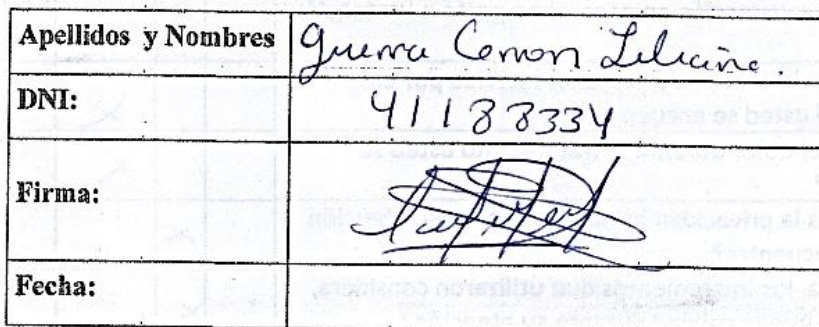 Apellidos y Nombres Guerra Comon Liliana.
DNI: 41188334
Firma:
Fecha: